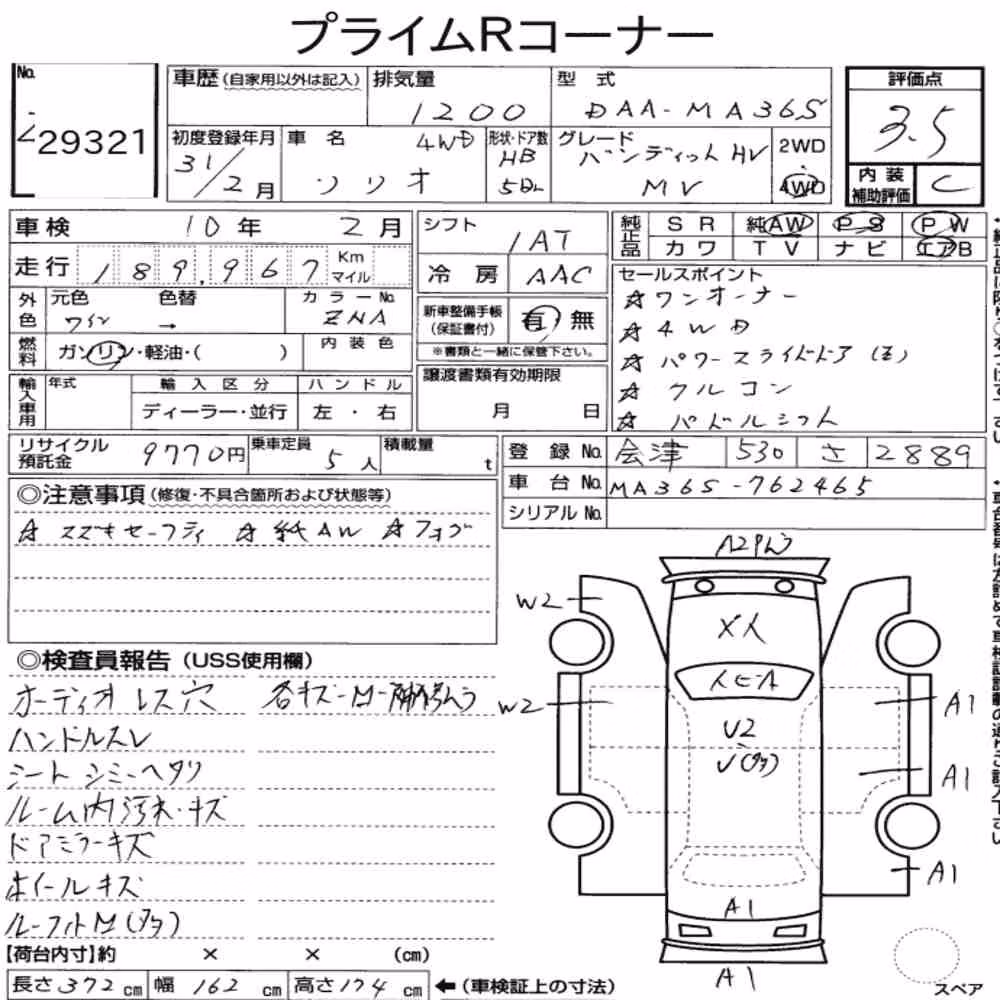 プライムRコーナー
No. 29321
車歴 (自家用以外は記入)
排気量 1200
型式 DAA-MA36S
評価点 3.5
初度登録年月 31/2月
車名 ソリオ 4WD
形状・ドア数 HB 5Dr
グレード バンディット HV MV
2WD
4WD
内装補助評価 C
車検 10年 2月
走行 189,967 Km マイル
シフト IAT
冷房 AAC
純正品 SR 純AW PS PW
カワ TV ナビ エアB
外色 元色 ワイン 色替 →
カラーNo. ZNA
燃料 ガソリン・軽油・( )
内装色
新車整備手帳(保証書付) 有 無
※書類と一緒に保管下さい。
セールスポイント
☆ワンオーナー
☆4WD
☆パワースライドドア(左)
☆クルコン
☆パドルシフト
輸入車用 年式
輸入区分 ディーラー・並行
ハンドル 左・右
譲渡書類有効期限
月 日
リサイクル預託金 9770円
乗車定員 5人
積載量 t
登録No. 会津 530 さ 2889
車台No. MA36S-762465
シリアルNo.
◎注意事項 (修復・不具合箇所および状態等)
☆スズキセーフティ ☆純AW ☆フォグ
◎検査員報告 (USS使用欄)
オーディオレス穴 各キズ-M-補修ムラ
ハンドルスレ
シート シミ・ヘタリ
ルーム内汚れ・キズ
ドアミラーキズ
ホイールキズ
ルーフイトM(タタ)
【荷台内寸】約 × × (cm)
長さ372cm 幅 162 cm 高さ174cm ←(車検証上の寸法)
W2
X人
W2
U2
A1
A1
A1
A1
A1
スペア